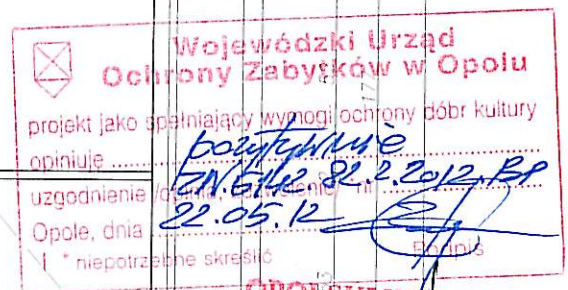 Wojewódzki Urząd
Ochrony Zabytków w Opolu
projekt jako spełniający wymogi ochrony dóbr kultury
opiniuje pozytywnie
uzgodnienie /opinia, nr ZN.5142.82.2.2012.BP
Opole, dnia 22.05.12
* niepotrzebne skreślić Podpis